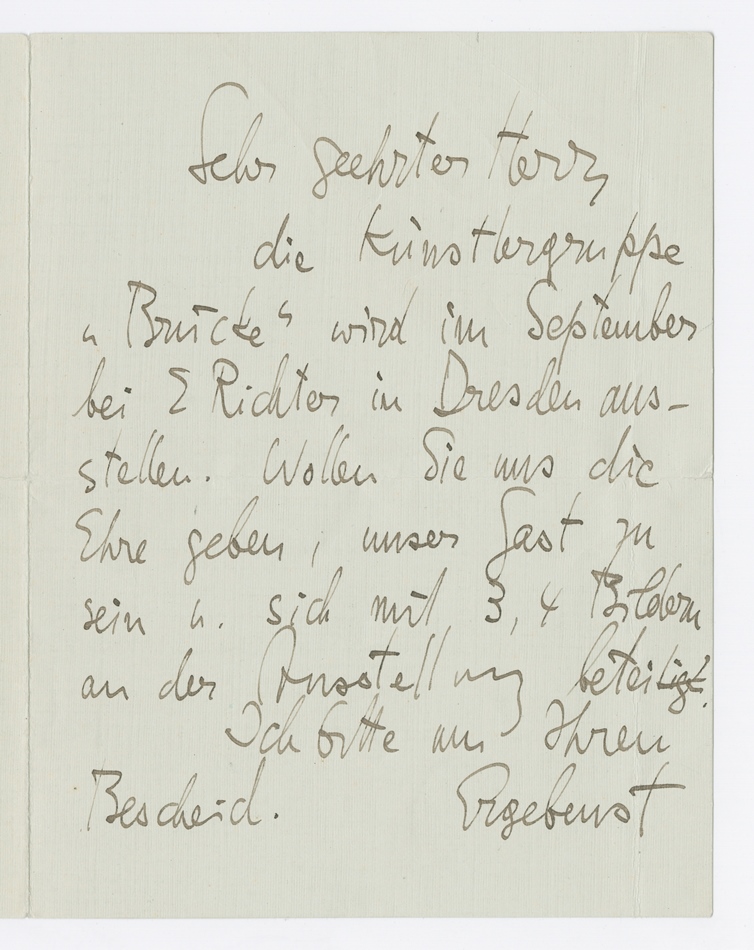 Sehr geehrter Herr,
die Künstlergruppe
„Brücke“ wird im September
bei E Richter in Dresden aus-
stellen. Wollen Sie uns die
Ehre geben, unser Gast zu
sein u. sich mit 3, 4 Bildern
an der Ausstellung beteiligt.
Ich bitte um Ihren
Bescheid. Ergebenst